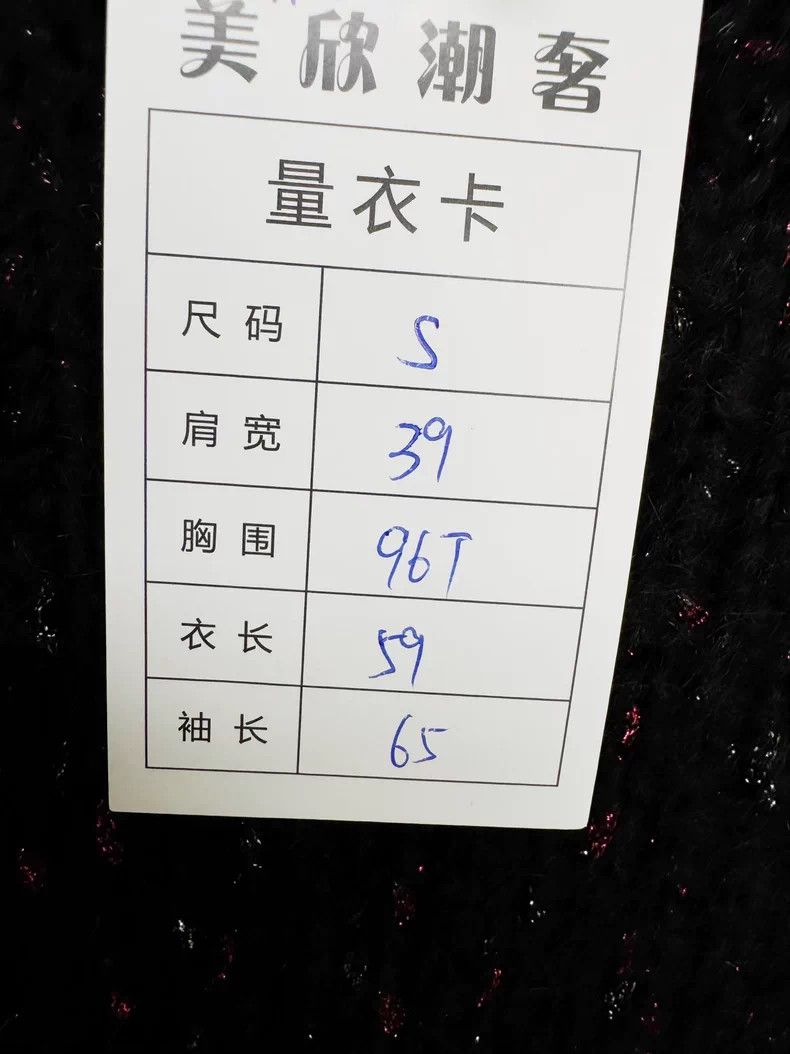 美欣潮奢
量衣卡
尺码 S
肩宽 39
胸围 96T
衣长 59
袖长 65